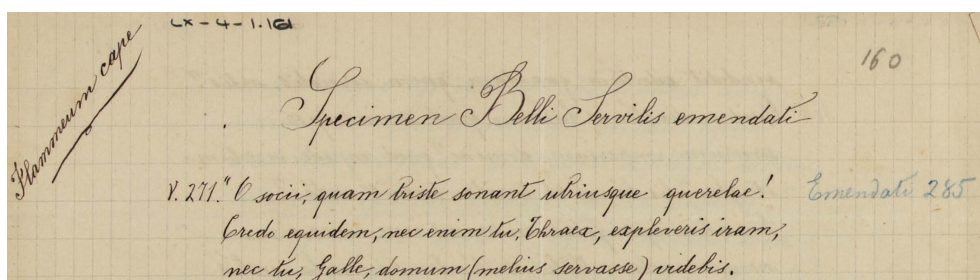 LX-4-1.161
160
Flammeum cape
Specimen Belli Servilis emendati
V. 271. "O socii, quam triste sonant utriusque querelae!
Emendati 285
Credo equidem, nec enim tu, Thraex, expleveris iram,
nec tu, Galle, domum (melius servasse) videbis.